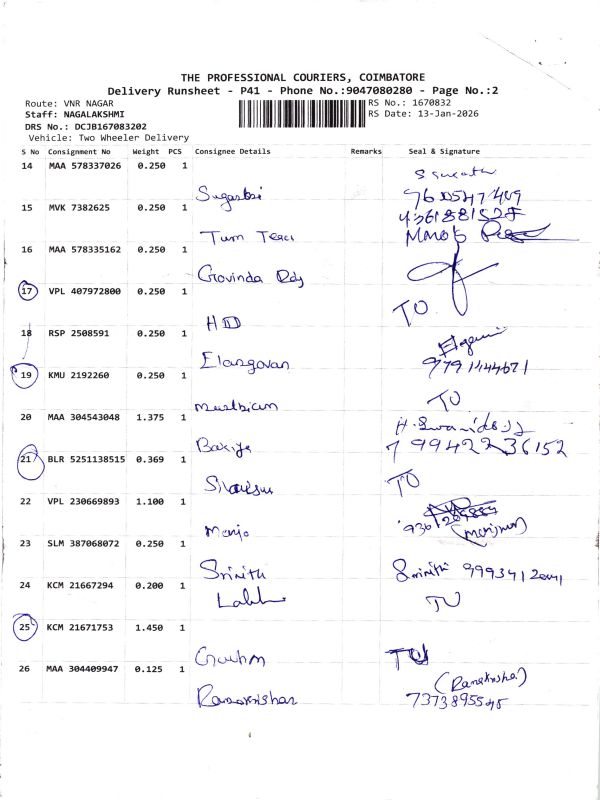 THE PROFESSIONAL COURIERS, COIMBATORE
Delivery Runsheet - P41 - Phone No.:9047080280 - Page No.:2
Route: VNR NAGAR RS No.: 1670832
Staff: NAGALAKSHMI RS Date: 13-Jan-2026
DRS No.: DCJB167083202
Vehicle: Two Wheeler Delivery
S No Consignment No Weight PCS Consignee Details Remarks Seal & Signature
14 MAA 578337026 0.250 1
15 MVK 7382625 0.250 1
Manoj
16 MAA 578335162 0.250 1
Govinda
17 VPL 407972800 0.250 1
TO
18 RSP 2508591 0.250 1
Elangovan
9791444671
19 KMU 2192260 0.250 1
TO
20 MAA 304543048 1.375 1
7 99422 36152
21 BLR 5251138515 0.369 1
TO
22 VPL 230669893 1.100 1
Manjo
23 SLM 387068072 0.250 1
Srinith
24 KCM 21667294 0.200 1
TO
25 KCM 21671753 1.450 1
26 MAA 304409947 0.125 1
7373895545